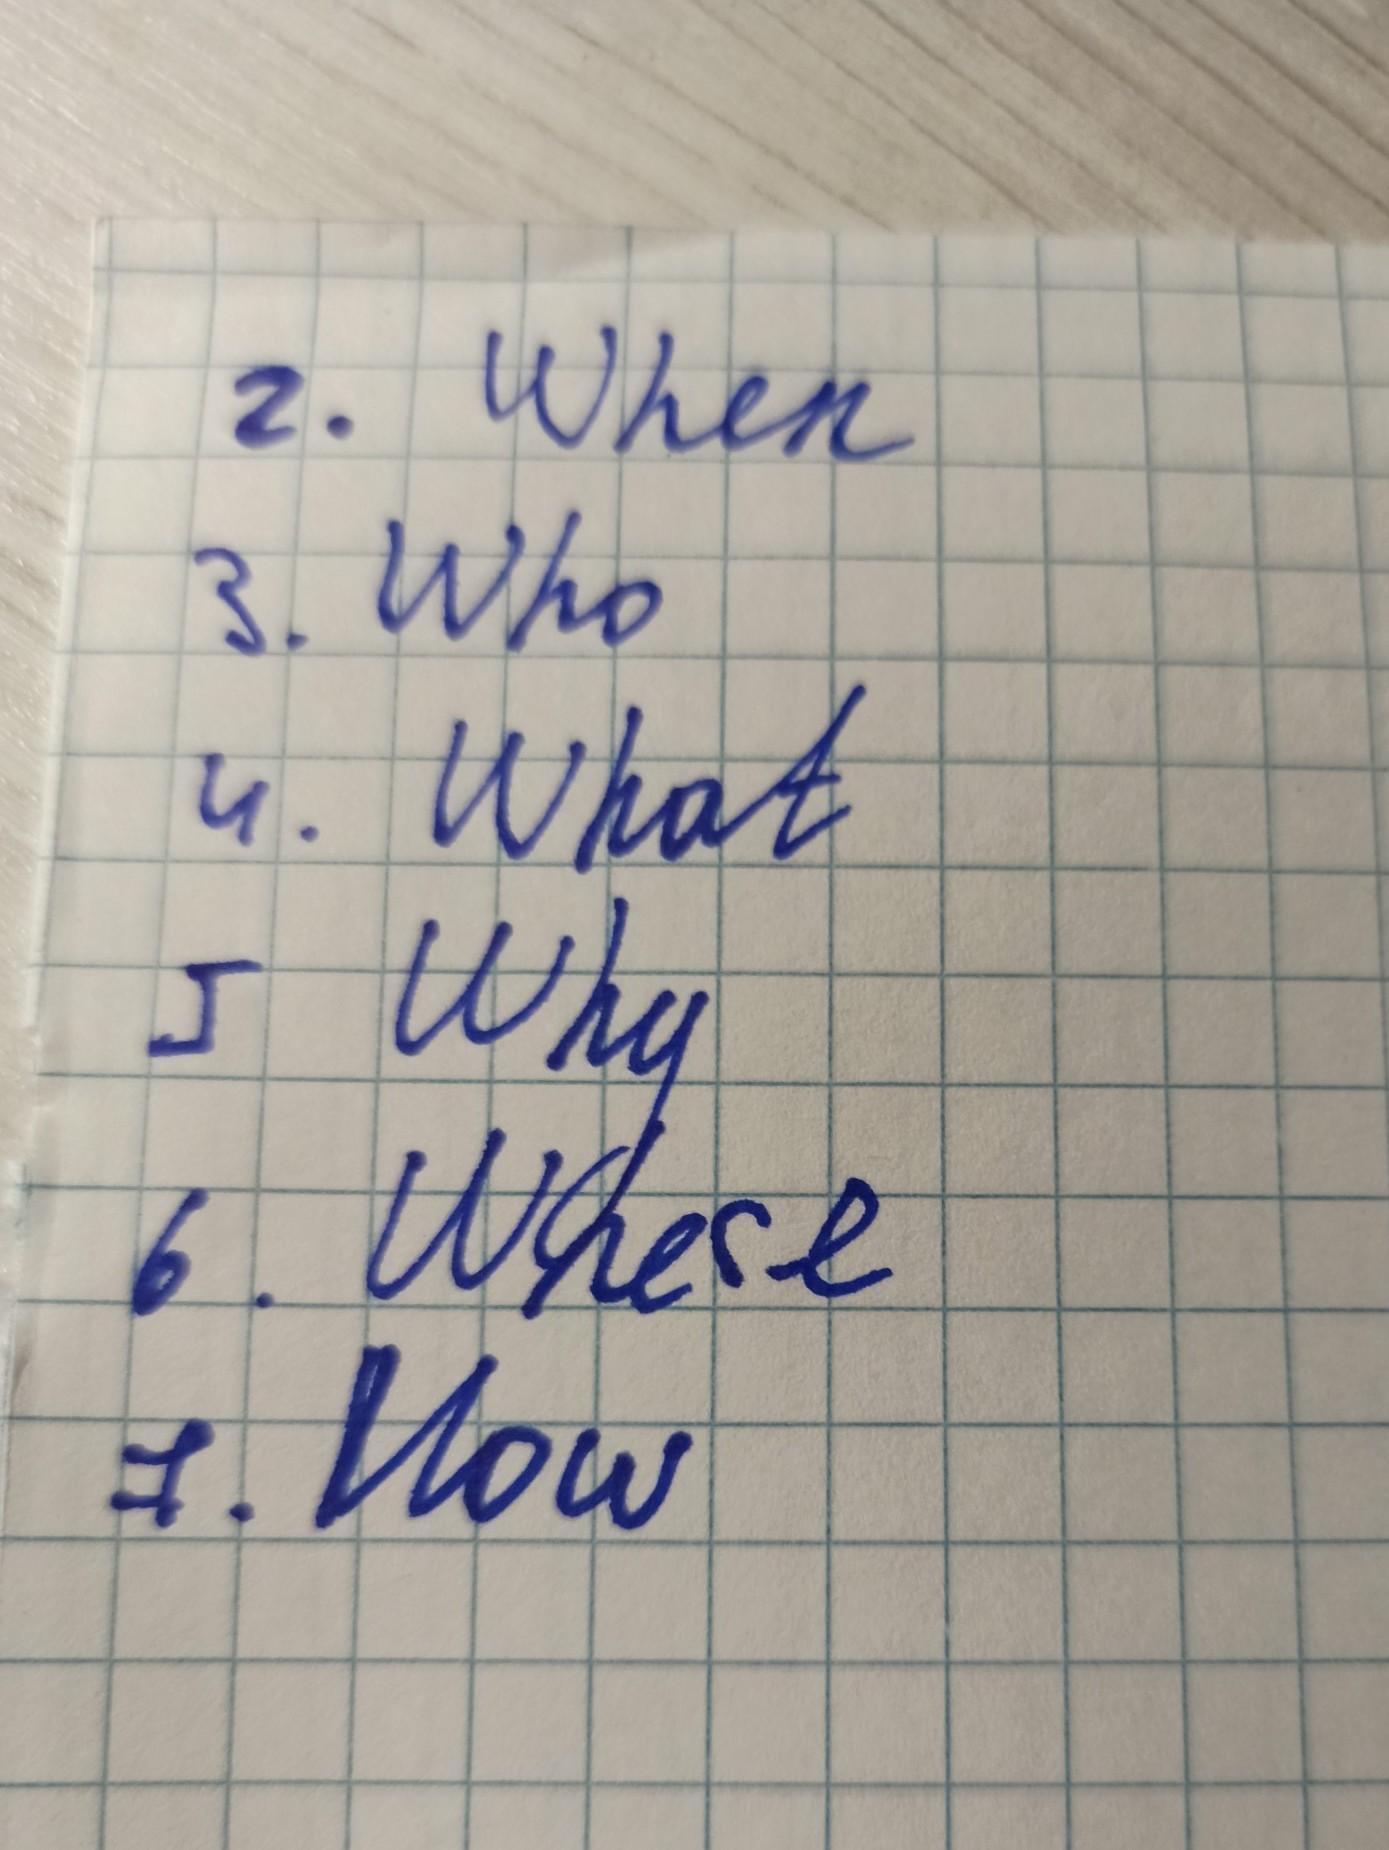 2. When
3. Who
4. What
5 Why
6. Where
7. How